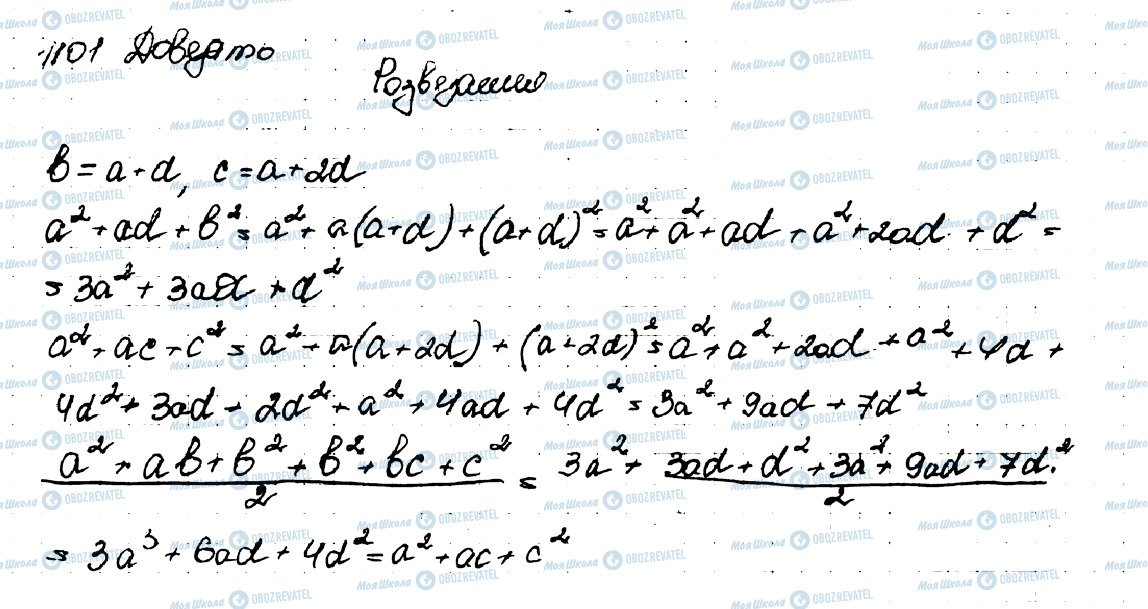 1101 Доведемо
Розвʼязання
b = a + d, c = a + 2d
a² + ad + b² = a² + a(a+d) + (a+d)² = a² + a² + ad + a² + 2ad + d² =
= 3a² + 3ad + d²
a² + ac + c² = a² + a(a+2d) + (a+2d)² = a² + a² + 2ad + a² + 4d +
4d² + 3ad + 2d² + a² + 4ad + 4d² = 3a² + 9ad + 7d²
(a² + ab + b² + b² + bc + c²)/2 = 3a² + (3ad + d² + 3a² + 9ad + 7d²)/2
= 3a³ + 6ad + 4d² = a² + ac + c²
Моя Школа OBOZREVATEL